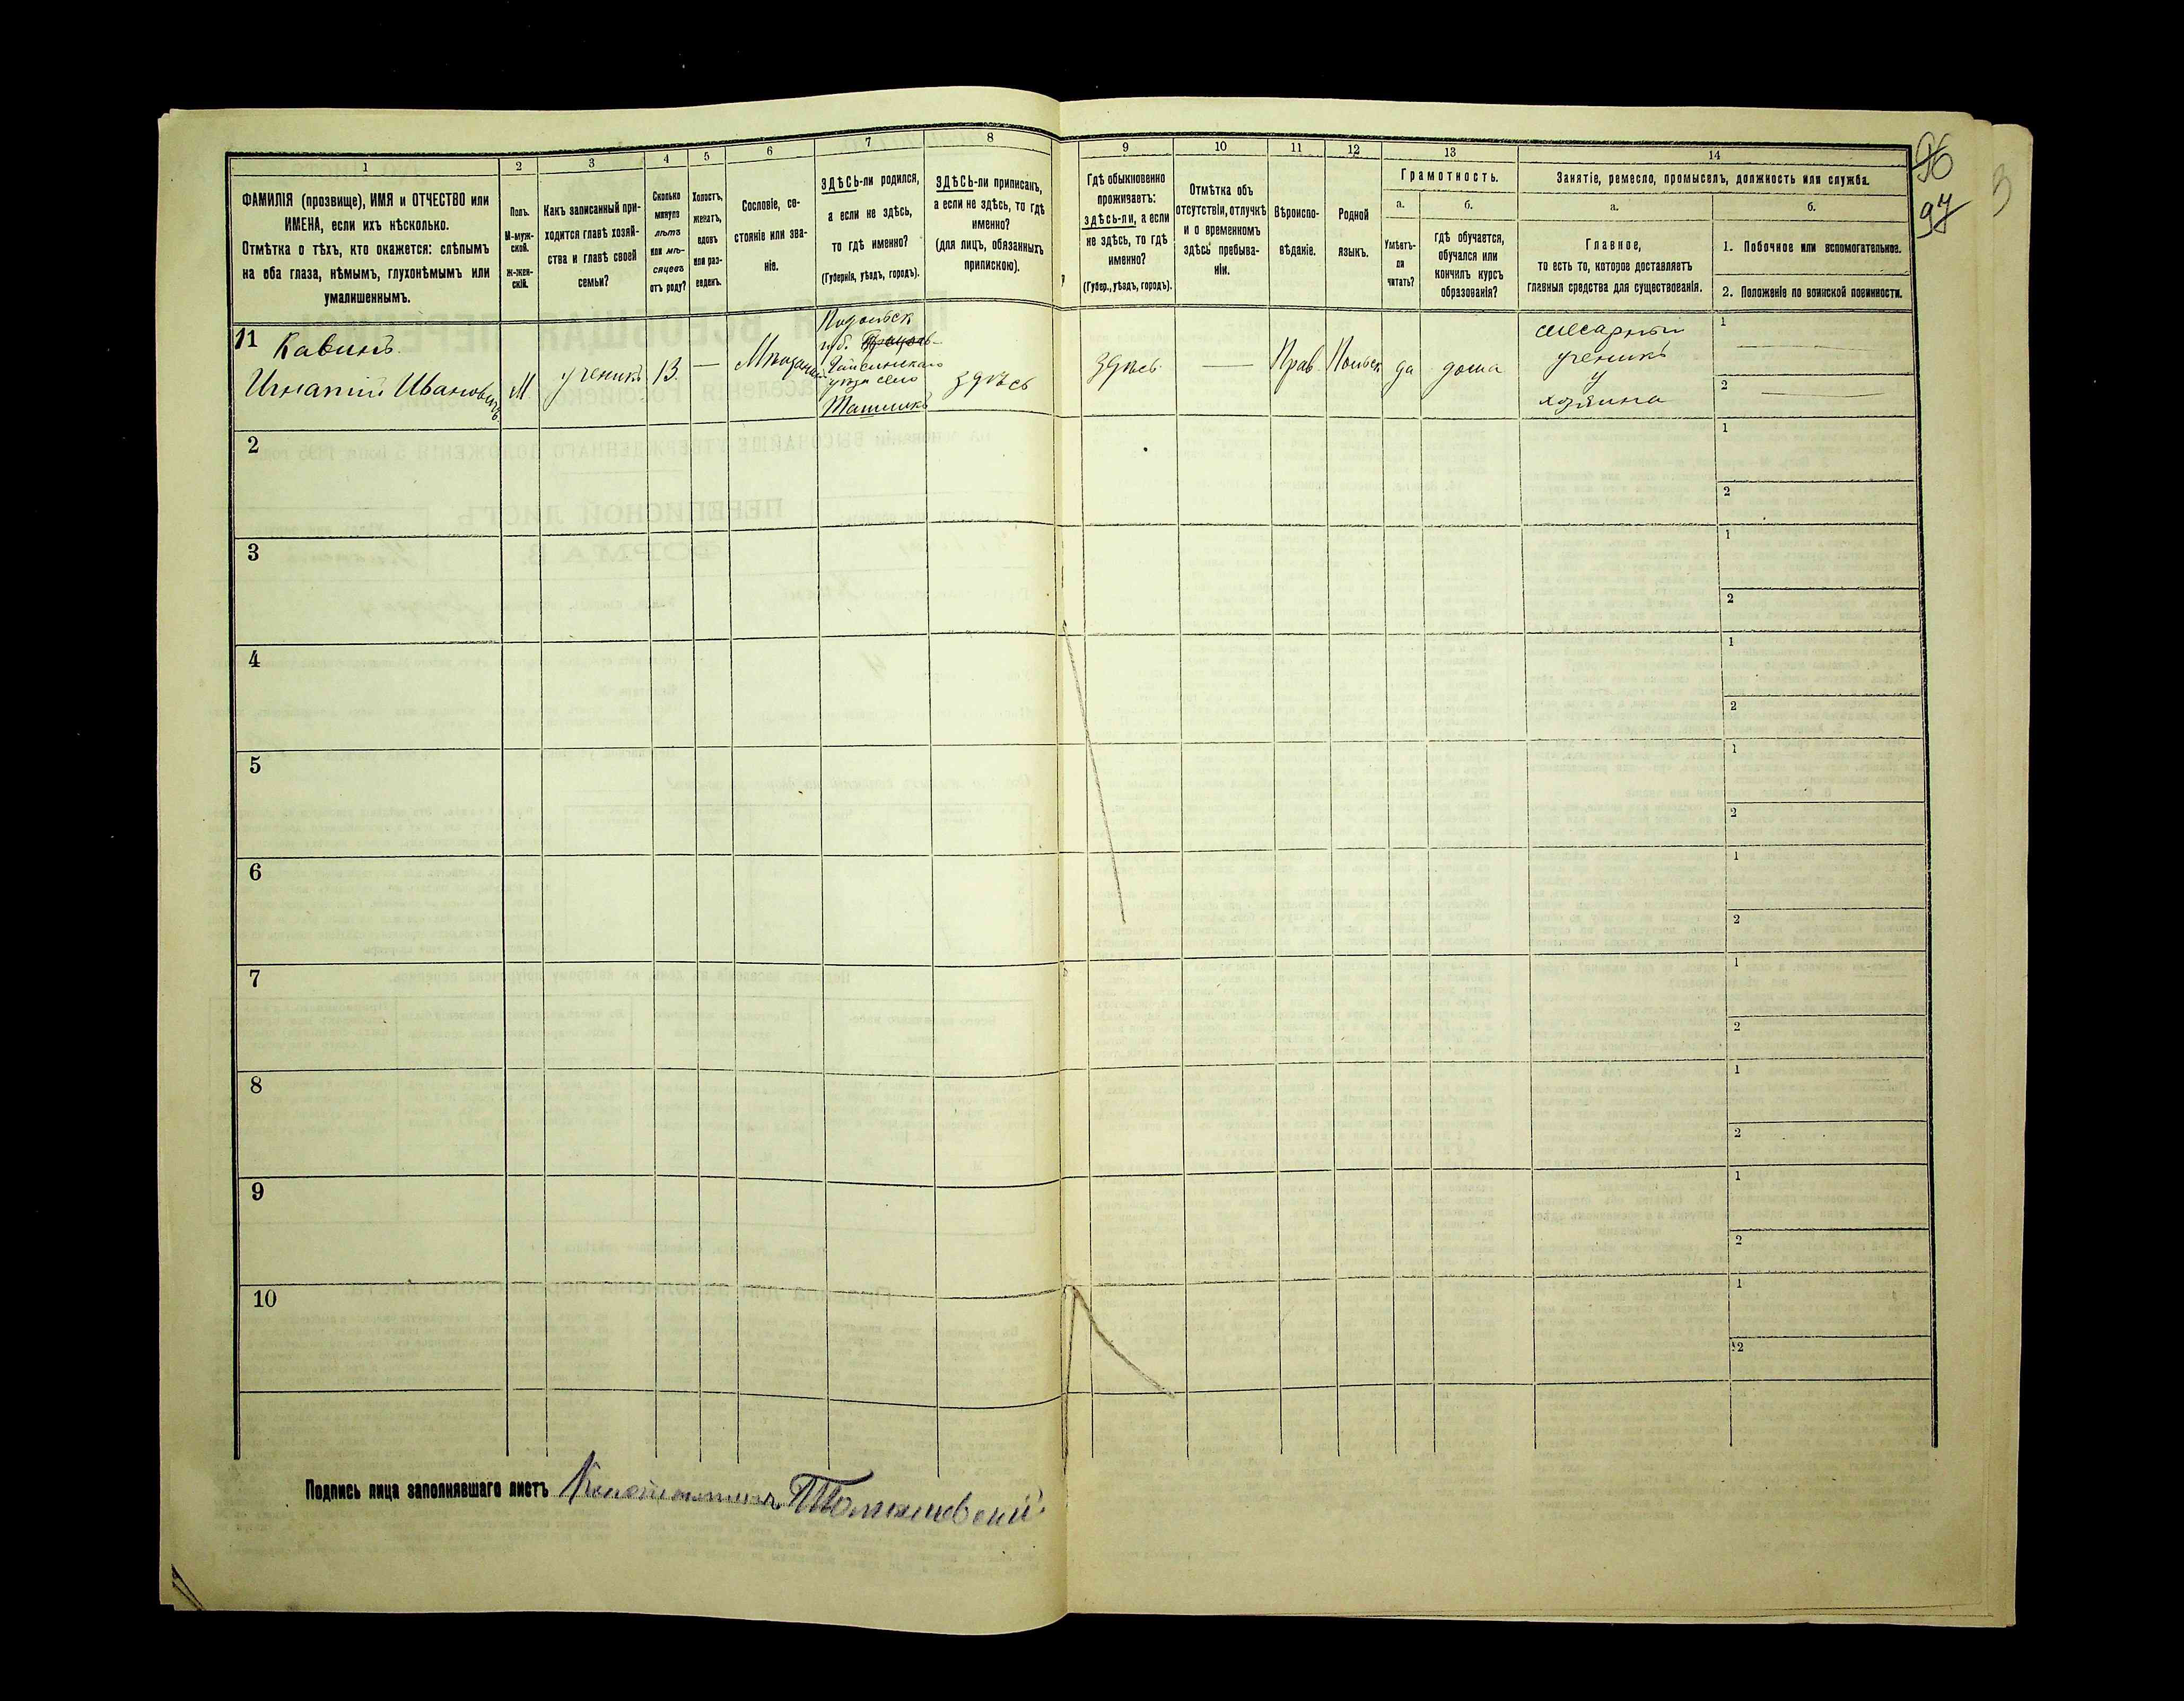 1
ФАМИЛІЯ (прозвище), ИМЯ и ОТЧЕСТВО или
ИМЕНА, если ихъ нѣсколько.
Отмѣтка о тѣхъ, кто окажется: слѣпымъ
на оба глаза, нѣмымъ, глухонѣмымъ или
умалишеннымъ.
2
Полъ.
М-муж-
ской.
Ж-жен-
скій.
3
Какъ записанный при-
ходится главѣ хозяй-
ства и главѣ своей
семьи?
4
Сколько
минуло
лѣтъ
или мѣ-
сяцевъ
отъ роду?
5
Холостъ,
женатъ,
вдовъ
или раз-
веденъ.
6
Сословіе, со-
стояніе или зва-
ніе.
7
ЗДѢСЬ-ли родился,
а если не здѣсь,
то гдѣ именно?
(Губернія, уѣздъ, городъ).
8
ЗДѢСЬ-ли приписанъ,
а если не здѣсь, то гдѣ
именно?
(для лицъ, обязанныхъ
припискою).
9
Гдѣ обыкновенно
проживаетъ:
здѣсь-ли, а если
не здѣсь, то гдѣ
именно?
(Губер., уѣздъ, городъ).
10
Отмѣтка объ
отсутствіи, отлучкѣ
и о временномъ
здѣсь пребыва-
ніи.
11
Вѣроиспо-
вѣданіе.
12
Родной
языкъ.
13
Грамотность.
а.
Умѣетъ-
ли
читать?
б.
гдѣ обучается,
обучался или
кончилъ курсъ
образованія?
14
Занятіе, ремесло, промыселъ, должность или служба.
а.
Главное,
то есть то, которое доставляетъ
главныя средства для существованія.
б.
1. Побочное или вспомогательное.
2. Положеніе по воинской повинности.
96
97
3
11
Кавинъ
Игнатій Ивановичъ
М
ученикъ
13
—
губ.
Гайсинскаго
село
здѣсь
здѣсь
—
Прав
Польск
да
дома
слесарный
ученикъ
у
хозяина
1
2
2
1
2
3
1
2
4
1
2
5
1
2
6
1
2
7
1
2
8
1
2
9
1
2
10
1
2
Подпись лица заполнявшаго листъ Константинъ